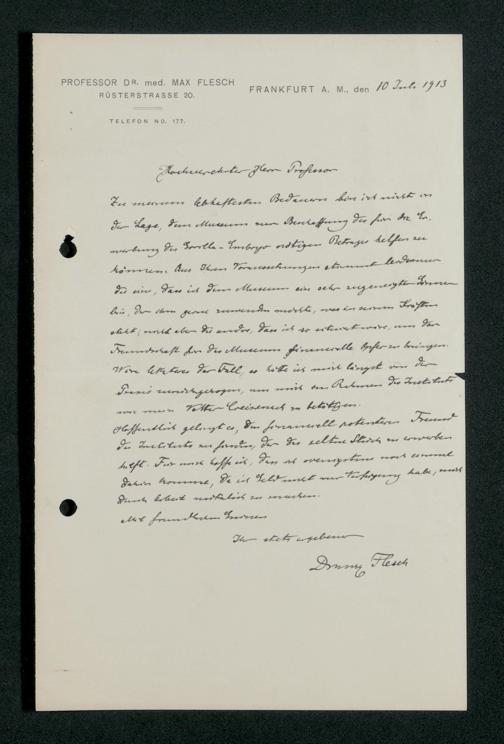 PROFESSOR DR. med. MAX FLESCH
RÜSTERSTRASSE 20.
TELEFON NO. 177.
FRANKFURT A. M., den 10 Juli 1913
Hochverehrter Herr Professor
Zu meinem lebhaftesten Bedauern bin ich nicht in
der Lage, dem Museum zur Beschaffung des für die Er-
werbung des Gorilla-Embryo nötigen Betrags helfen zu
können. Aus Ihren Voraussetzungen stimmt leider nur
die eine, dass ich dem Museum ein sehr zugeneigter Gönner
bin, der ihm gerne zuwenden möchte, was in seinen Kräften
steht; nicht aber die andre, dass ich so situiert wäre, um der
Freundschaft für das Museum financielle Opfer zu bringen.
Wäre letzteres der Fall, so hätte ich mich längst von der
Praxis zurückgezogen, um mich im Rahmen des Instituts
wie mein Vetter zu betätigen.
Hoffentlich gelingt es, den financiell potenteren Freund
des Instituts zu finden, der das seltene Stück zu erwerben
hilft. Für mich hoffe ich, dass ich wenigstens noch einmal
dahin komme, da ich Geld nicht zur Verfügung habe, mich
durch Arbeit nützlich zu machen.
Mit freundlichen Grüssen
Ihr stets ergebener
Flesch